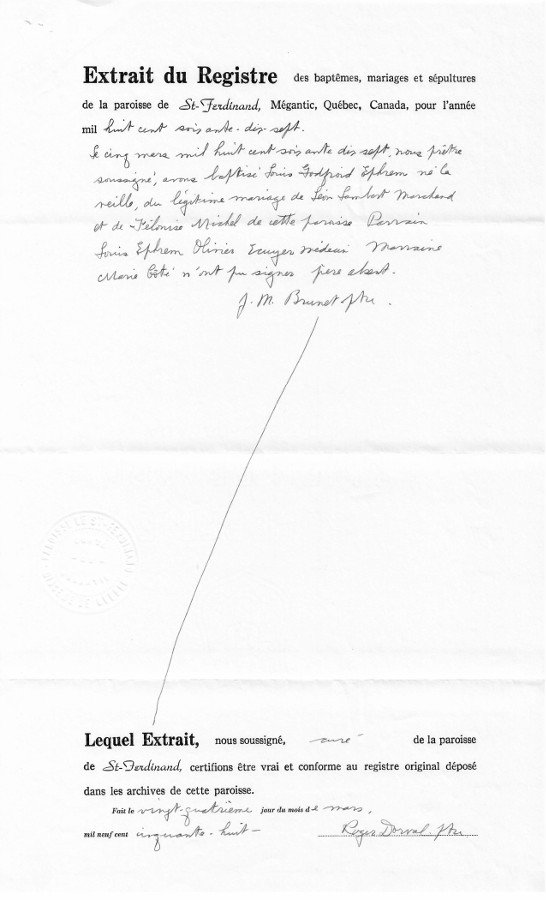 Extrait du Registre des baptêmes, mariages et sépultures
de la paroisse de St-Ferdinand, Mégantic, Québec, Canada, pour l'année
mil huit cent soixante-dix-sept.
Le cinq mars mil huit cent soixante dix sept, nous prêtre
soussigné, avons baptisé Louis Godfroid Ephrem né la
veille, du légitime mariage de Léon Lambert Marchand
et de Michel de cette paroisse Parrain
Louis Ephrem Olivier Ecuyer médecin Marraine
Marie Côté n'ont pu signer père absent.
J. M. Brunet ptre.
Lequel Extrait, nous soussigné, curé de la paroisse
de St-Ferdinand, certifions être vrai et conforme au registre original déposé
dans les archives de cette paroisse.
Fait le vingt-quatrième jour du mois de mars,
mil neuf cent cinquante-huit- Roger Dorval ptre